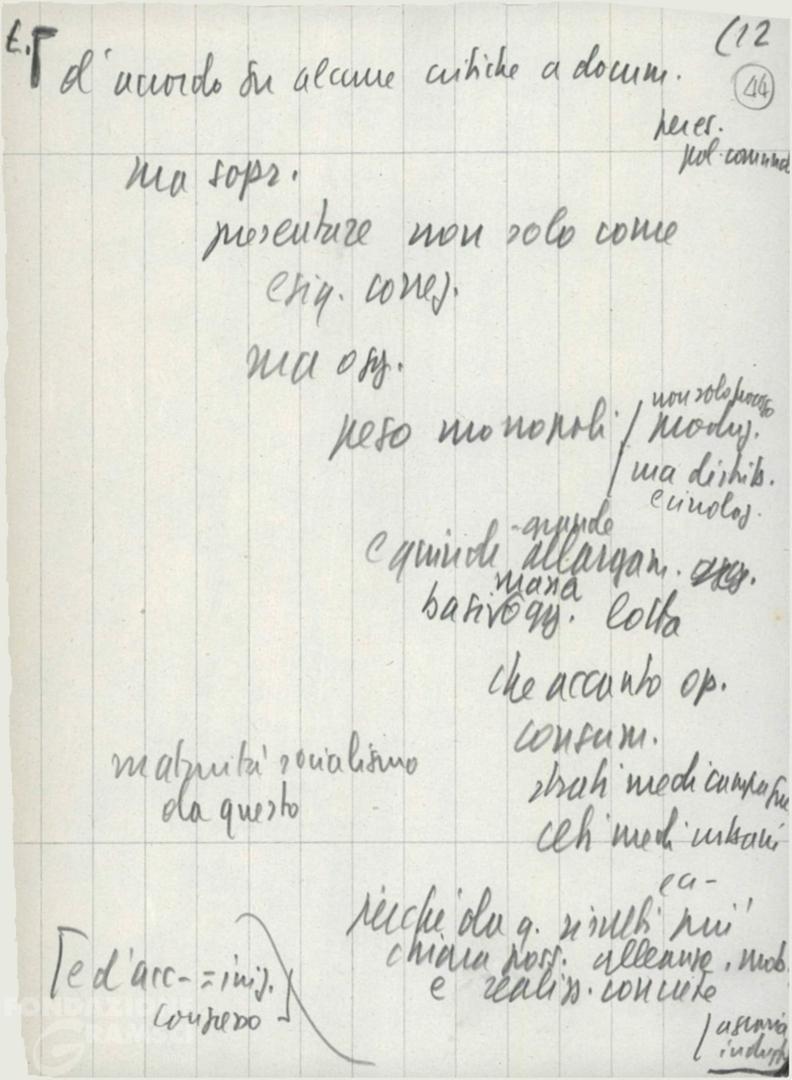 t.
(12
44
d'accordo su alcune critiche a docum.
per es.
pol. comun
ma sopr.
presentare non solo come
esig. corres.
ma ogg.
peso monopoli
non solo processo
produz.
ma distrib.
e
e quindi grande allargam.
basi massa ogg. lotta
che accanto op.
consum.
strati medi campagne
ceti medi urbani
maturità socialismo
da questo
perché da q. risulti più
chiara poss. alleanze, mob.
e realizz. concrete
[e d'acc- = iniz.
congresso]
industr
FONDAZIONE
GRAMSCI